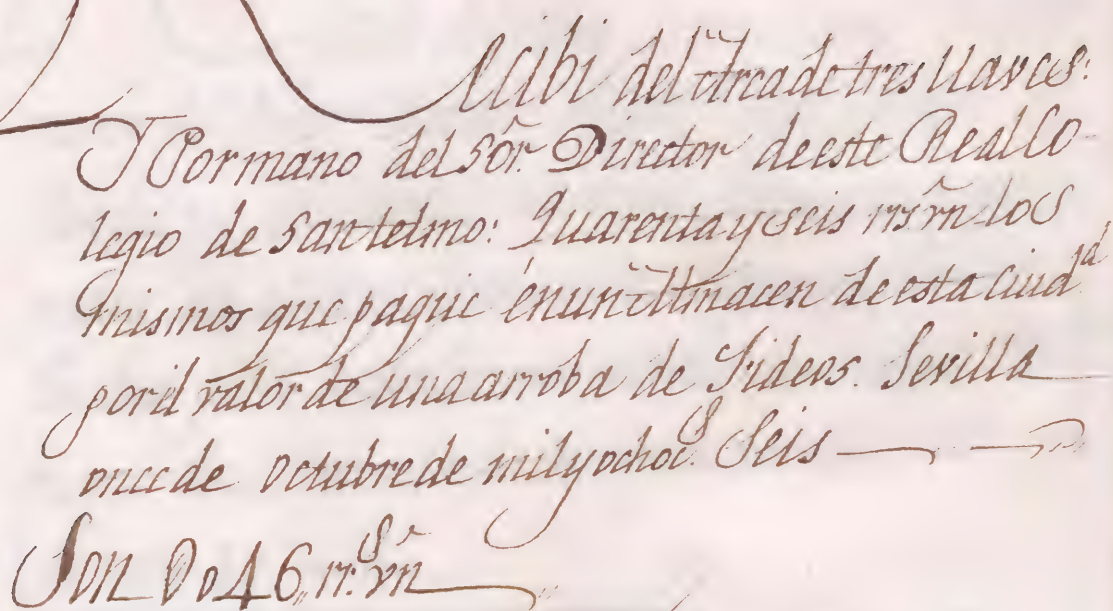 Recibi del Arca de tres llaves:
Y Por mano del Sõr. Director de este Real Co-
legio de Santelmo: Quarenta y seis rrs vñ los
mismos que paguè en un Almacen de esta Ciudad
por el valor de una arroba de Fideos. Sevilla
once de Octubre de mil y ochocs. Seis
Son Do 46 rrs. vñ